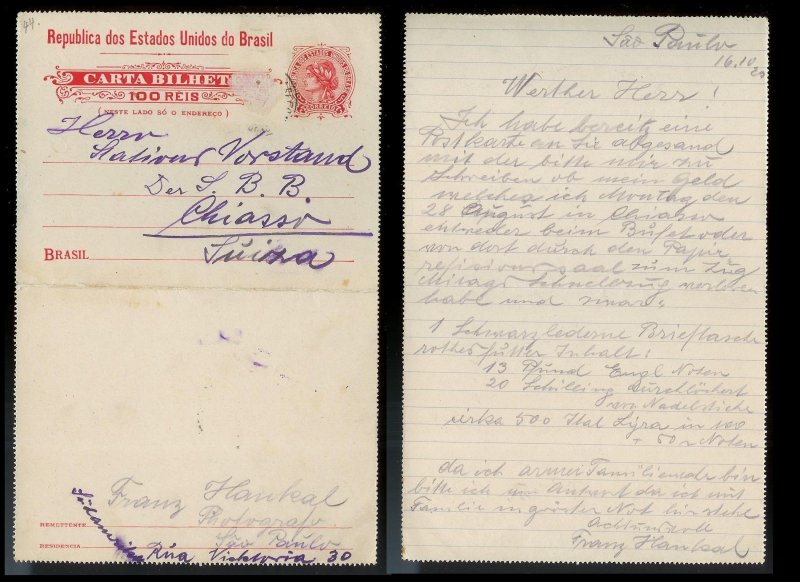 44.
Republica dos Estados Unidos do Brasil
CARTA BILHETE
100 RÉIS
(NESTE LADO SÓ O ENDEREÇO)
CORREIO
Herrn
Stations Vorstand
Der S. B. B
Chiasso
BRASIL
Suizza
Franz Hankal
Photografo
REMETTENTE
São Paulo
RESIDENCIA
Südamerika Rúa Vichtoria 30
São Paulo
16.10
Werther Herr!
Ich habe bereitz eine
Postkarte an Sie abgesand
mit der bitte mir zu
schreiben ob mein Geld
welches ich Montag den
28 August in Chiasso
entweder beim Bufet oder
von dort durch den
saal zum Zug
Schnellzug verloren
habe und zwar:
1 Schwarzlederne Brieftasche
rothes futter Inhalt:
13 Pfund Engl Noten
20 Schilling durchlöchert
von Nadelstiche
zirka 500 Ital Lÿra in 100
+ 50 Noten
da ich armer Familienvader bin
bitte ich um Antwort da ich mit
Familie in gröster Not hir stehe
Achtungvoll
Franz Hankal